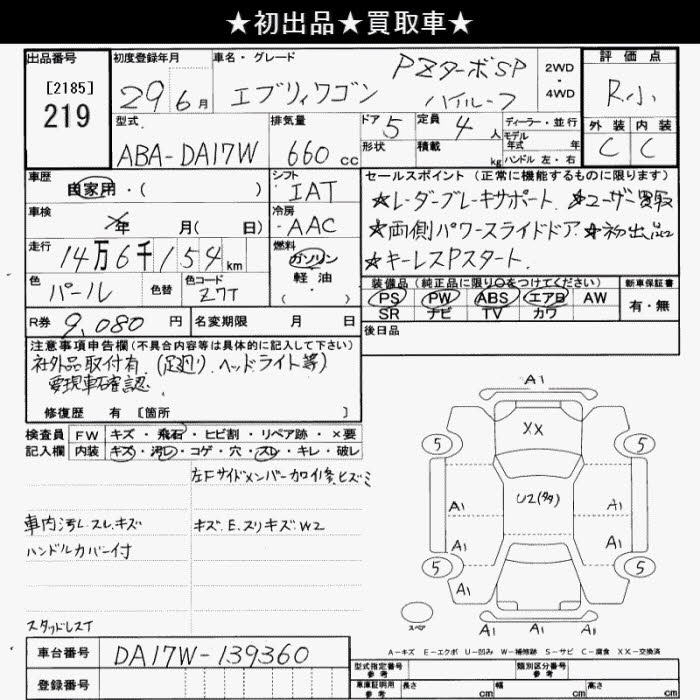 ★初出品★買取車★
出品番号
[2185]
219
初度登録年月
29年6月
車名・グレード
エブリィワゴン
PZターボSP
ハイルーフ
2WD
・
4WD
評価点
R小
外装 内装
C C
型式
ABA-DA17W
排気量
660cc
ドア 5
形状
定員 4人
積載 kg
ディーラー・並行
モデル
年式 年
ハンドル 左・右
車歴
自家用・( )
シフト
IAT
車検
年 月( 日)
冷房
AAC
走行
14万6千154km
燃料
ガソリン
軽油
・( )
色
パール
色替
色コード
Z7T
R券 9,080円
名変期限 月 日
セールスポイント(正常に機能するものに限ります)
★レーダーブレーキサポート ★ユーザー買取
★両側パワースライドドア ★初出品
★キーレスPスタート
装備品(純正品に限り○をつけてください)
PS PW ABS エアB AW
SR ナビ TV カワ
新車保証書
有・無
後日品
注意事項申告欄(不具合内容等は具体的に記入して下さい)
社外品取付有(足廻り、ヘッドライト等)
要現車確認
修復歴 有 [箇所 ]
検査員
記入欄
FW キズ・飛石・ヒビ割・リペア跡・×要
内装 キズ・汚レ・コゲ・穴・スレ・キレ・破レ
左Fサイドメンバー カロイ修、ヒズミ
車内汚レ スレ キズ
キズ、E、スリキズ、W2
ハンドルカバー付
スタッドレスT
A1
XX
5 5
U2(多)
A1 A1
A1 A1
5 5
A1
A1 A1 A1
スペア
A-キズ E-エクボ U-凹み W-補修跡 S-サビ C-腐食 XX-交換済
車台番号
DA17W-139360
登録番号
型式指定番号
参考
類別区分番号
参考
車庫証明用
参考
長さ cm 幅 cm 高さ cm